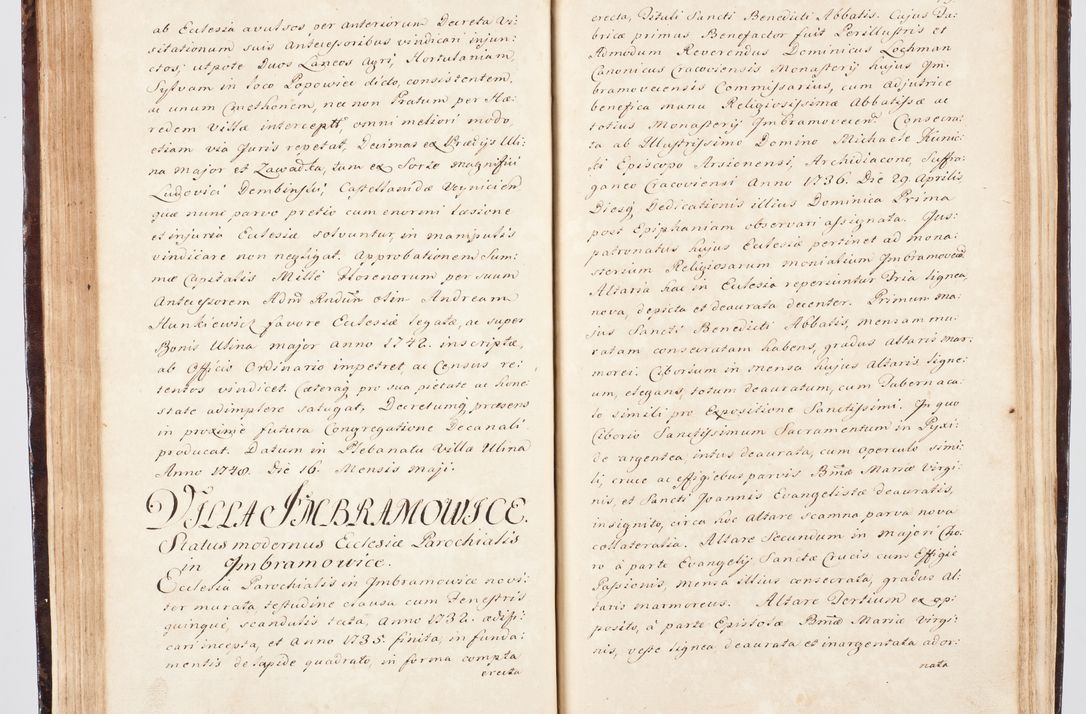 ab Ecclesia avulsos, per anteriorum Decreta Vi:
sitationum suis Antecessoribus vindicari injun:
ctos; utpote Duos Laneos Agri, Hortulaniam,
Sylvam in loco Popowiec dicto, consistentem,
ac unum Cmethonem, nec non Pratum per Hæ:
redem Villæ interceptū, omni meliori modo,
etiam via Juris repetat, Decimas ex Prædijs Uli:
na major et Zawadka, tum ex Sorte Magnifici
Ludovici Dembinski, Castellanidæ Voynicien̄
quæ nunc parvo pretio cum enormi læsione
et injuria Ecclesiæ solvuntur, in manipulis
vindicare non negligat. Approbationem Sum:
mæ Capitalis Mille Florenorum per suum
Antecessorem Adm̄ Rndum olim Andream
Hunkiewicz favore Ecclesiæ legatæ, ac super
Bonis Ulina major Anno 1742. inscriptæ,
ab Officio Ordinario impetret, ac Census re:
tentos vindicet. Cæteraq̄ pro sua pietate ac hone:
state adimplere satagat, Decretumq̄ præsens
in proxime futura Congregatione Decanali
producat. Datum in Plebanali Villa Ulina
Anno 1748. Die 16. Mensis Maji.
VILLA IMBRAMOWICE.
Status modernus Ecclesiæ Parochialis
in Imbramowice.
Ecclesia Parochialis in Imbramowice novi:
ter murata testudine clausa cum Fenestris
quinque, scandulis tecta, Anno 1732. ædifi:
cari incepta, et Anno 1735. finita, in funda:
mentis de lapide quadrato, in forma compta
erecta
erecta, Tituli Sancti Benedicti Abbatis. Cujus Fa:
bricæ primus Benefactor fuit Perillustris et
Admodum Reverendus Dominicus Lochman
Canonicus Cracoviensis Monasterij hujus Im:
bramovecensis Commissarius, cum adjutrice
benefica manu Religiosissimæ Abbatissæ ac
totius Monasterij Imbramovecen̄. Consecra:
ta ab Illustrissimo Domino Michaele Kuni:
cki Episcopo Arsicensi, Archidiacono, Suffra:
ganeo Cracoviensi Anno 1736. Die 29 Aprilis
Diesq̄ Dedicationis illius Dominica Prima
post Epiphaniam observari assignata. Jus:
patronatus hujus Ecclesiæ pertinet ad Mona:
sterium Religiosarum Monialium Imbramovecen̄
Altaria hac in Ecclesia reperiuntur Tria lignea,
nova, depicta et deaurata decenter. Primum ma:
jus Sancti Benedicti Abbatis, mensam mu:
ratam consecratam habens, gradus Altaris mar:
morei. Ciborium in mensa hujus Altaris ligne:
um, elegans, totum deauratum, cum Tabernacu:
lo simili pro Expositione Sanctissimi. In quo
Ciborio Sanctissimum Sacramentum in Pyxi:
de argentea intus deaurata, cum operculo simi:
li, cruce ac effigiebus parvis Bm̄æ Mariæ Virgi:
nis, et Sancti Joannis Evangelistæ deauratis,
insignito, circa hoc Altare scamna parva nova
collateralia. Altare Secundum in majori Cho:
ro à parte Evangelij Sanctæ Crucis cum Effigie
Passionis, mensa illius consecrata, gradus Al:
taris marmoreus. Altare Tertium ex op:
posito, à parte Epistolæ Bm̄æ Mariæ Virgi:
nis, veste lignea deaurata et inargentata ador:
nata